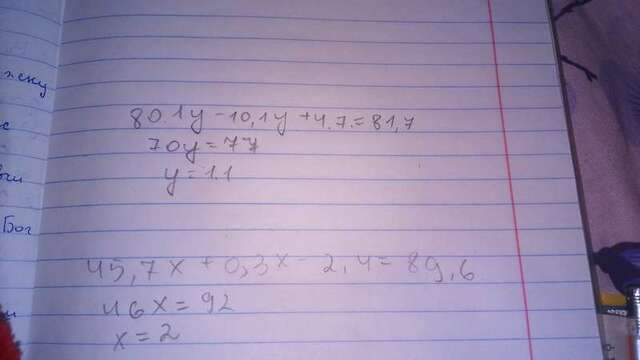 80.1y - 10,1y + 4.7 = 81,7
70y = 77
y = 1.1
45,7x + 0,3x - 2,4 = 89,6
46x = 92
x = 2
Бог